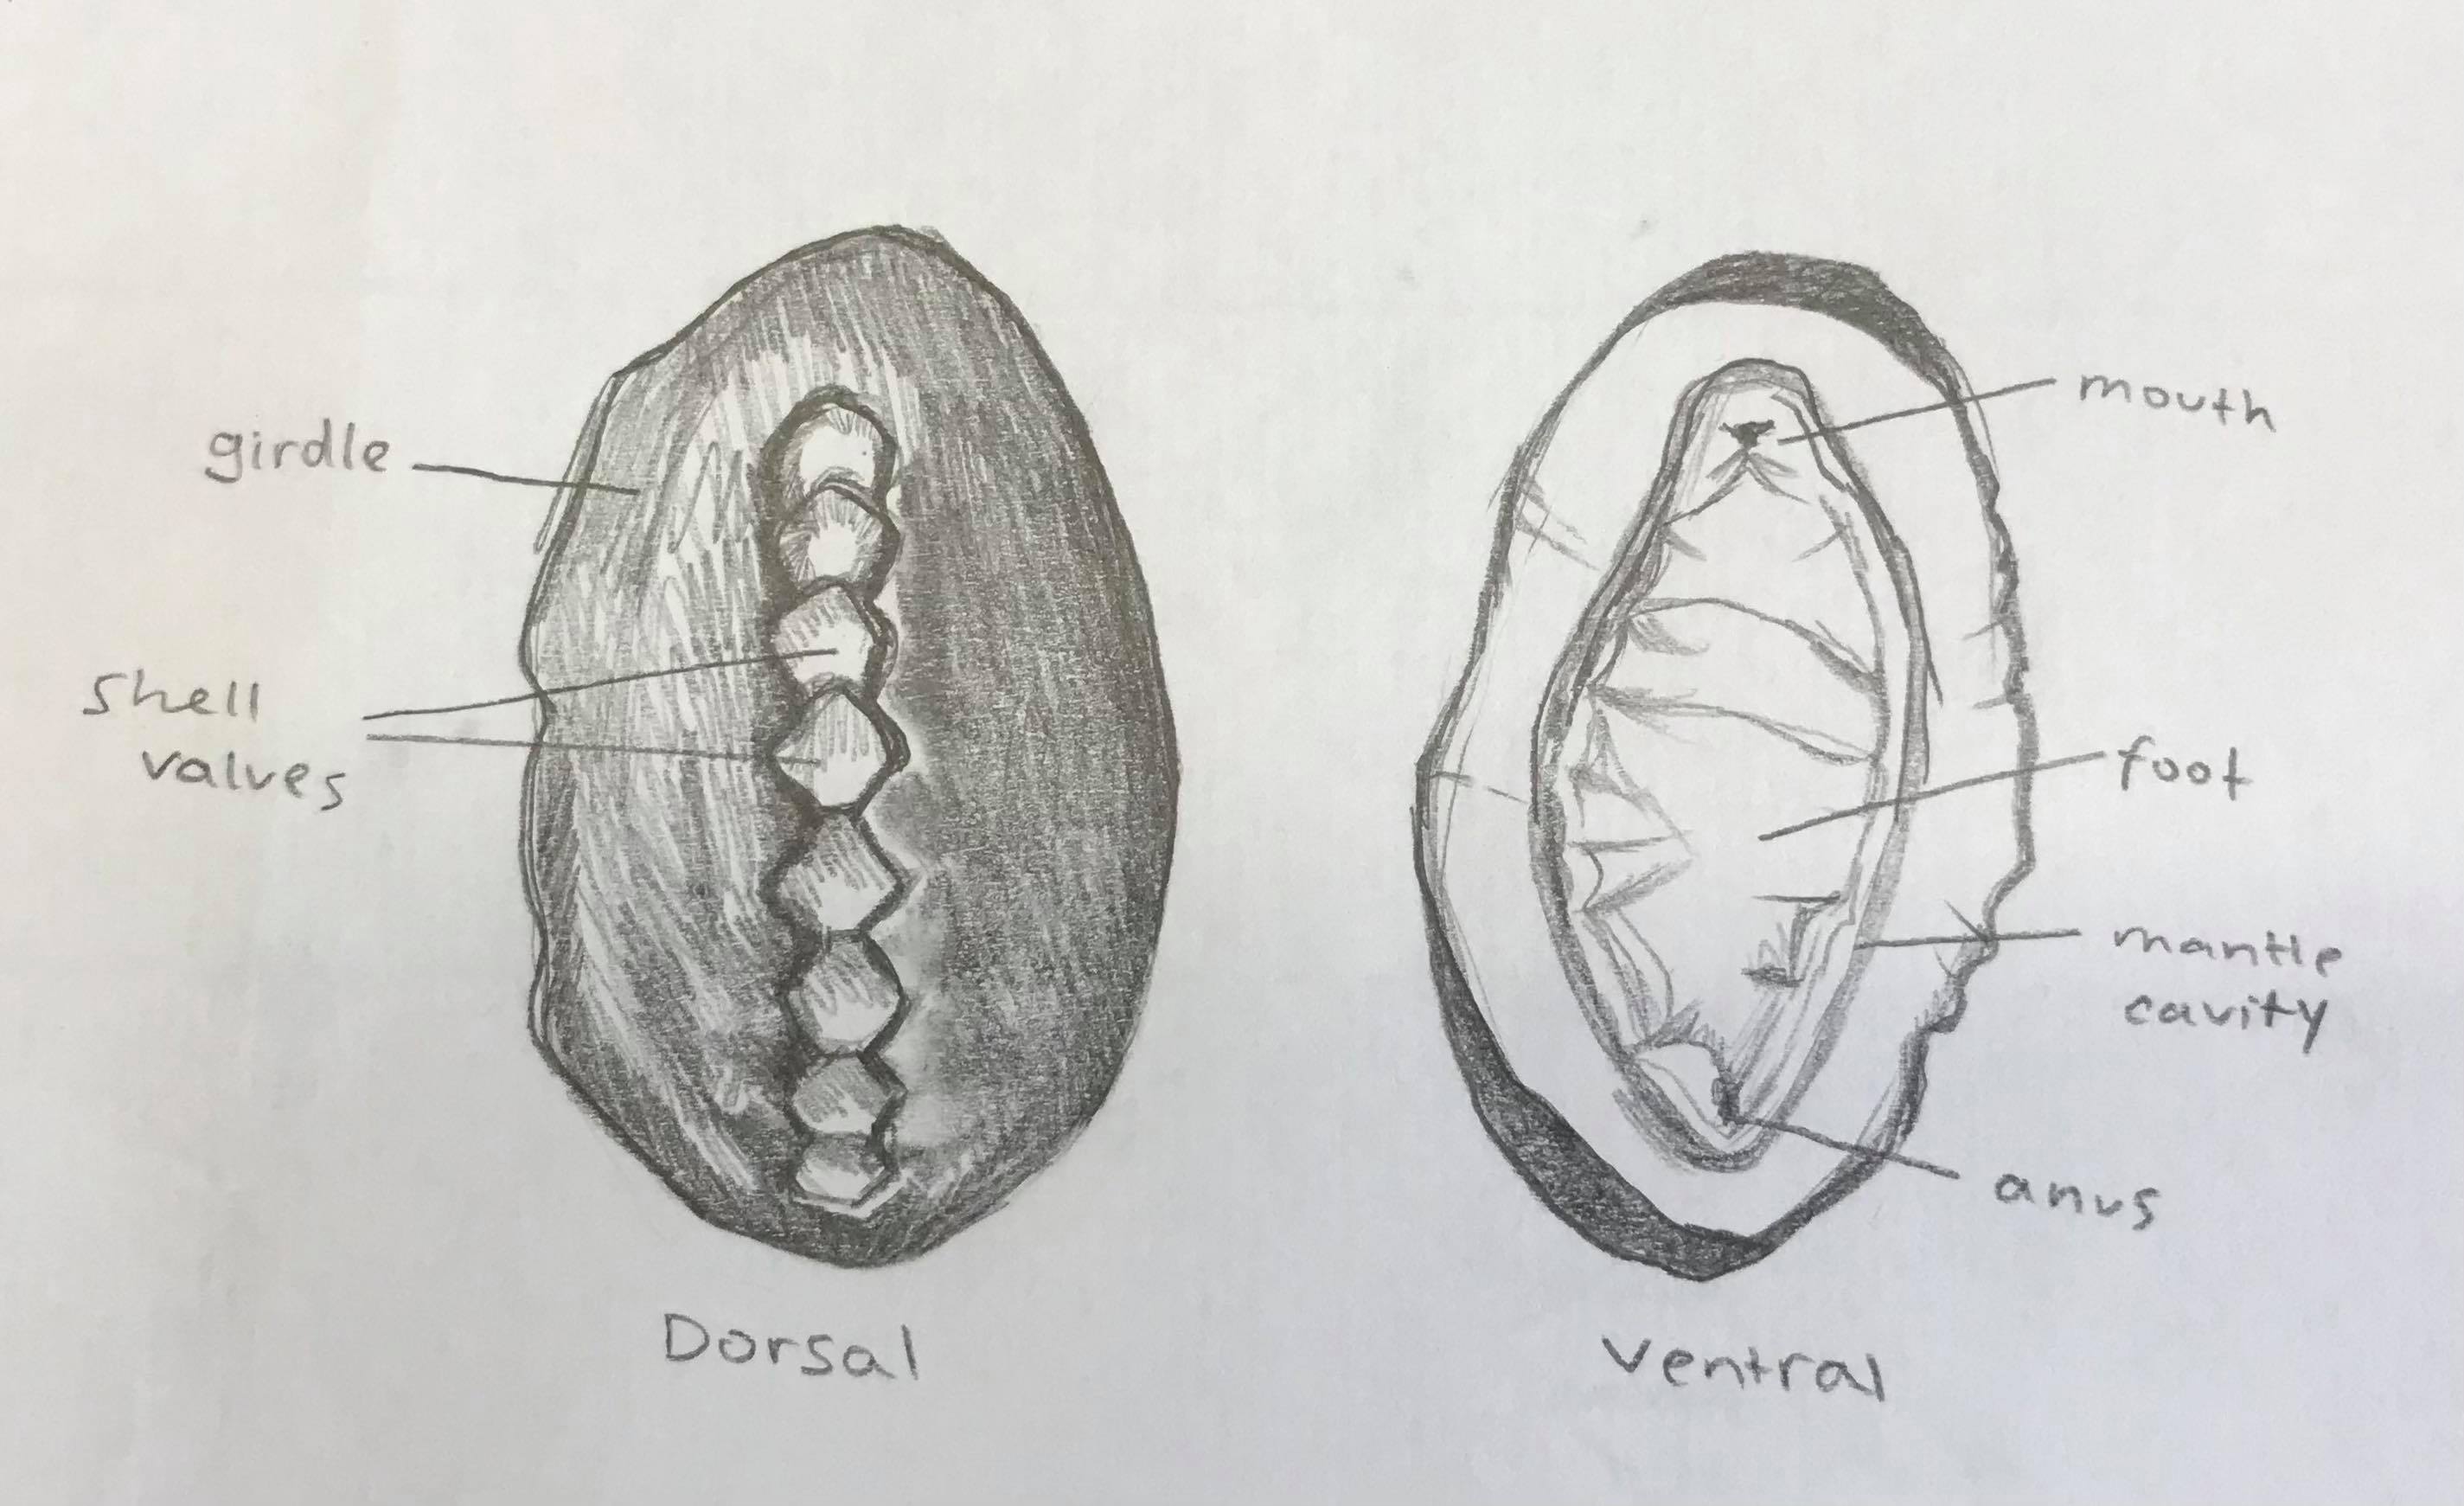 girdle
shell
valves
Dorsal
mouth
foot
mantle
cavity
anus
Ventral